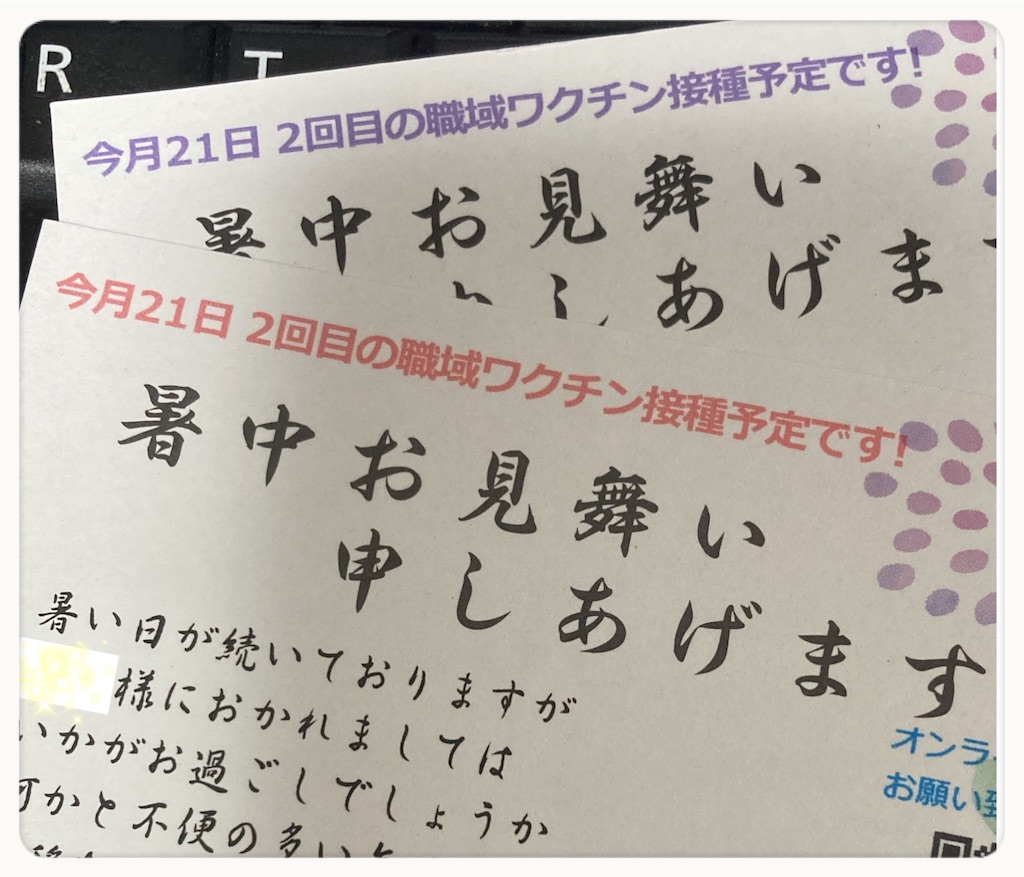 R T
今月21日 2回目の職域ワクチン接種予定です!
暑中お見舞い
しあげま
今月21日 2回目の職域ワクチン接種予定です!
暑中お見舞い
申しあげます
暑い日が続いておりますが
様におかれましては
いかがお過ごしでしょうか
何かと不便の多い
オンラ
お願い致